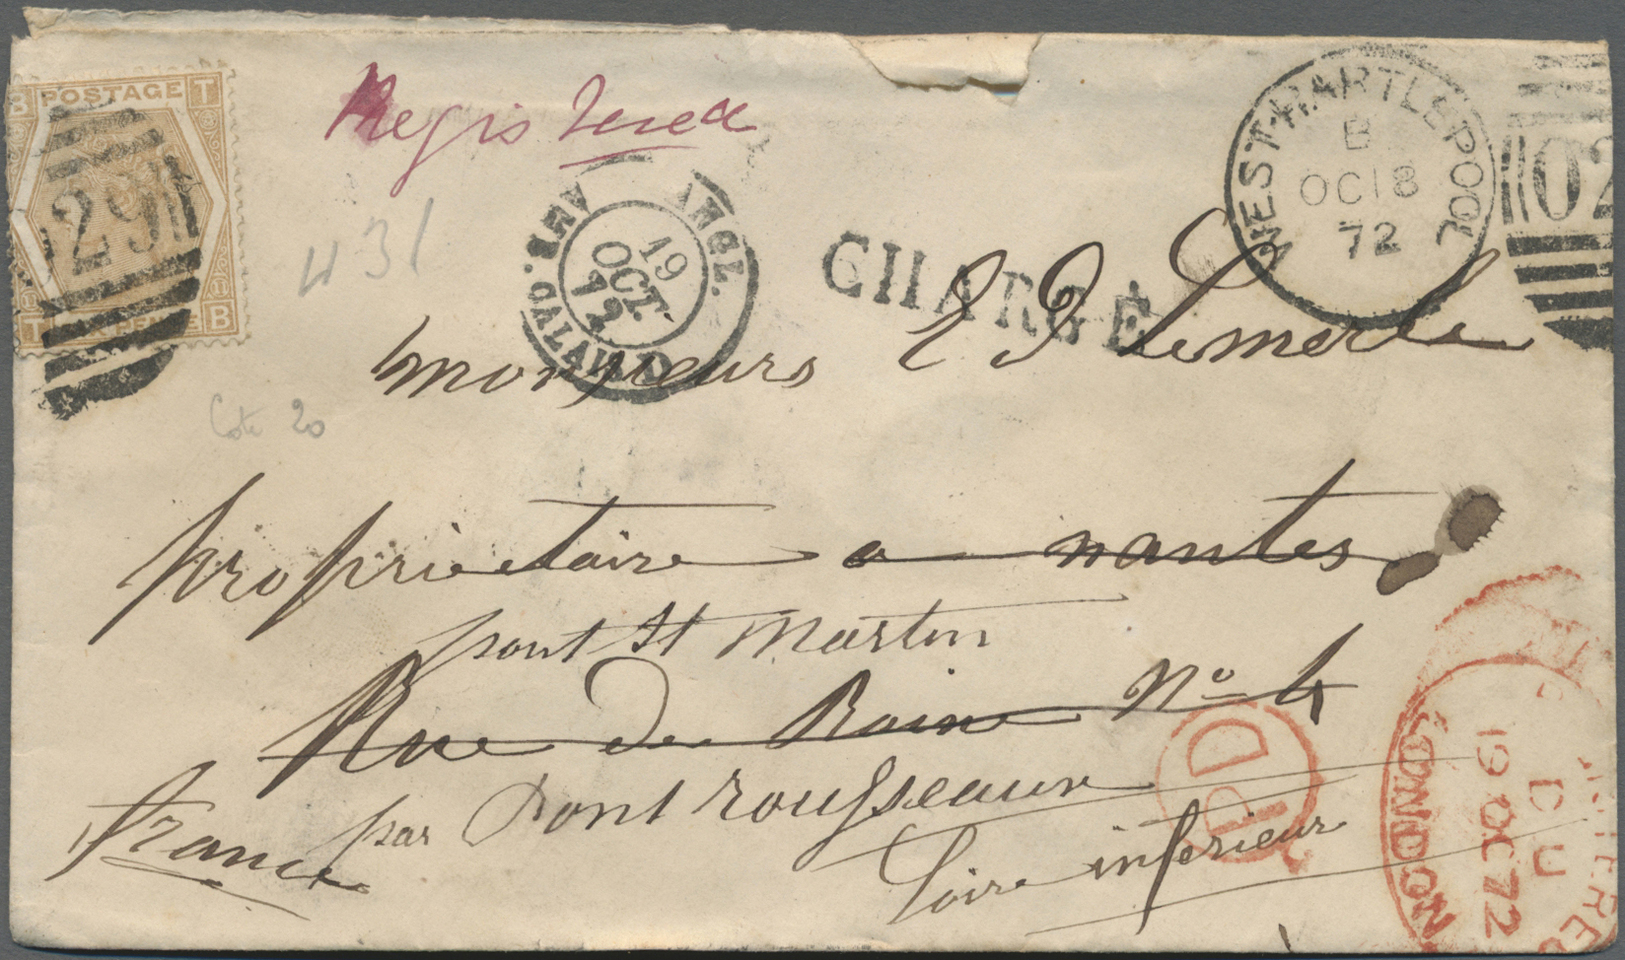 B POSTAGE T
T PENCE B
29
Registered
431
ANGL.
19
OCT.
72
AMB. CALAIS
CHARGÉ
WEST-HARTLEPOOL
B
OC 18
72
02
Monsieurs Lemerle
Cote 20
propriétaire a nantes
pont St Martin
Rue de No 4
PD
par Pont rousseaux
France
Loire inferieur
LONDON
19 OC 72